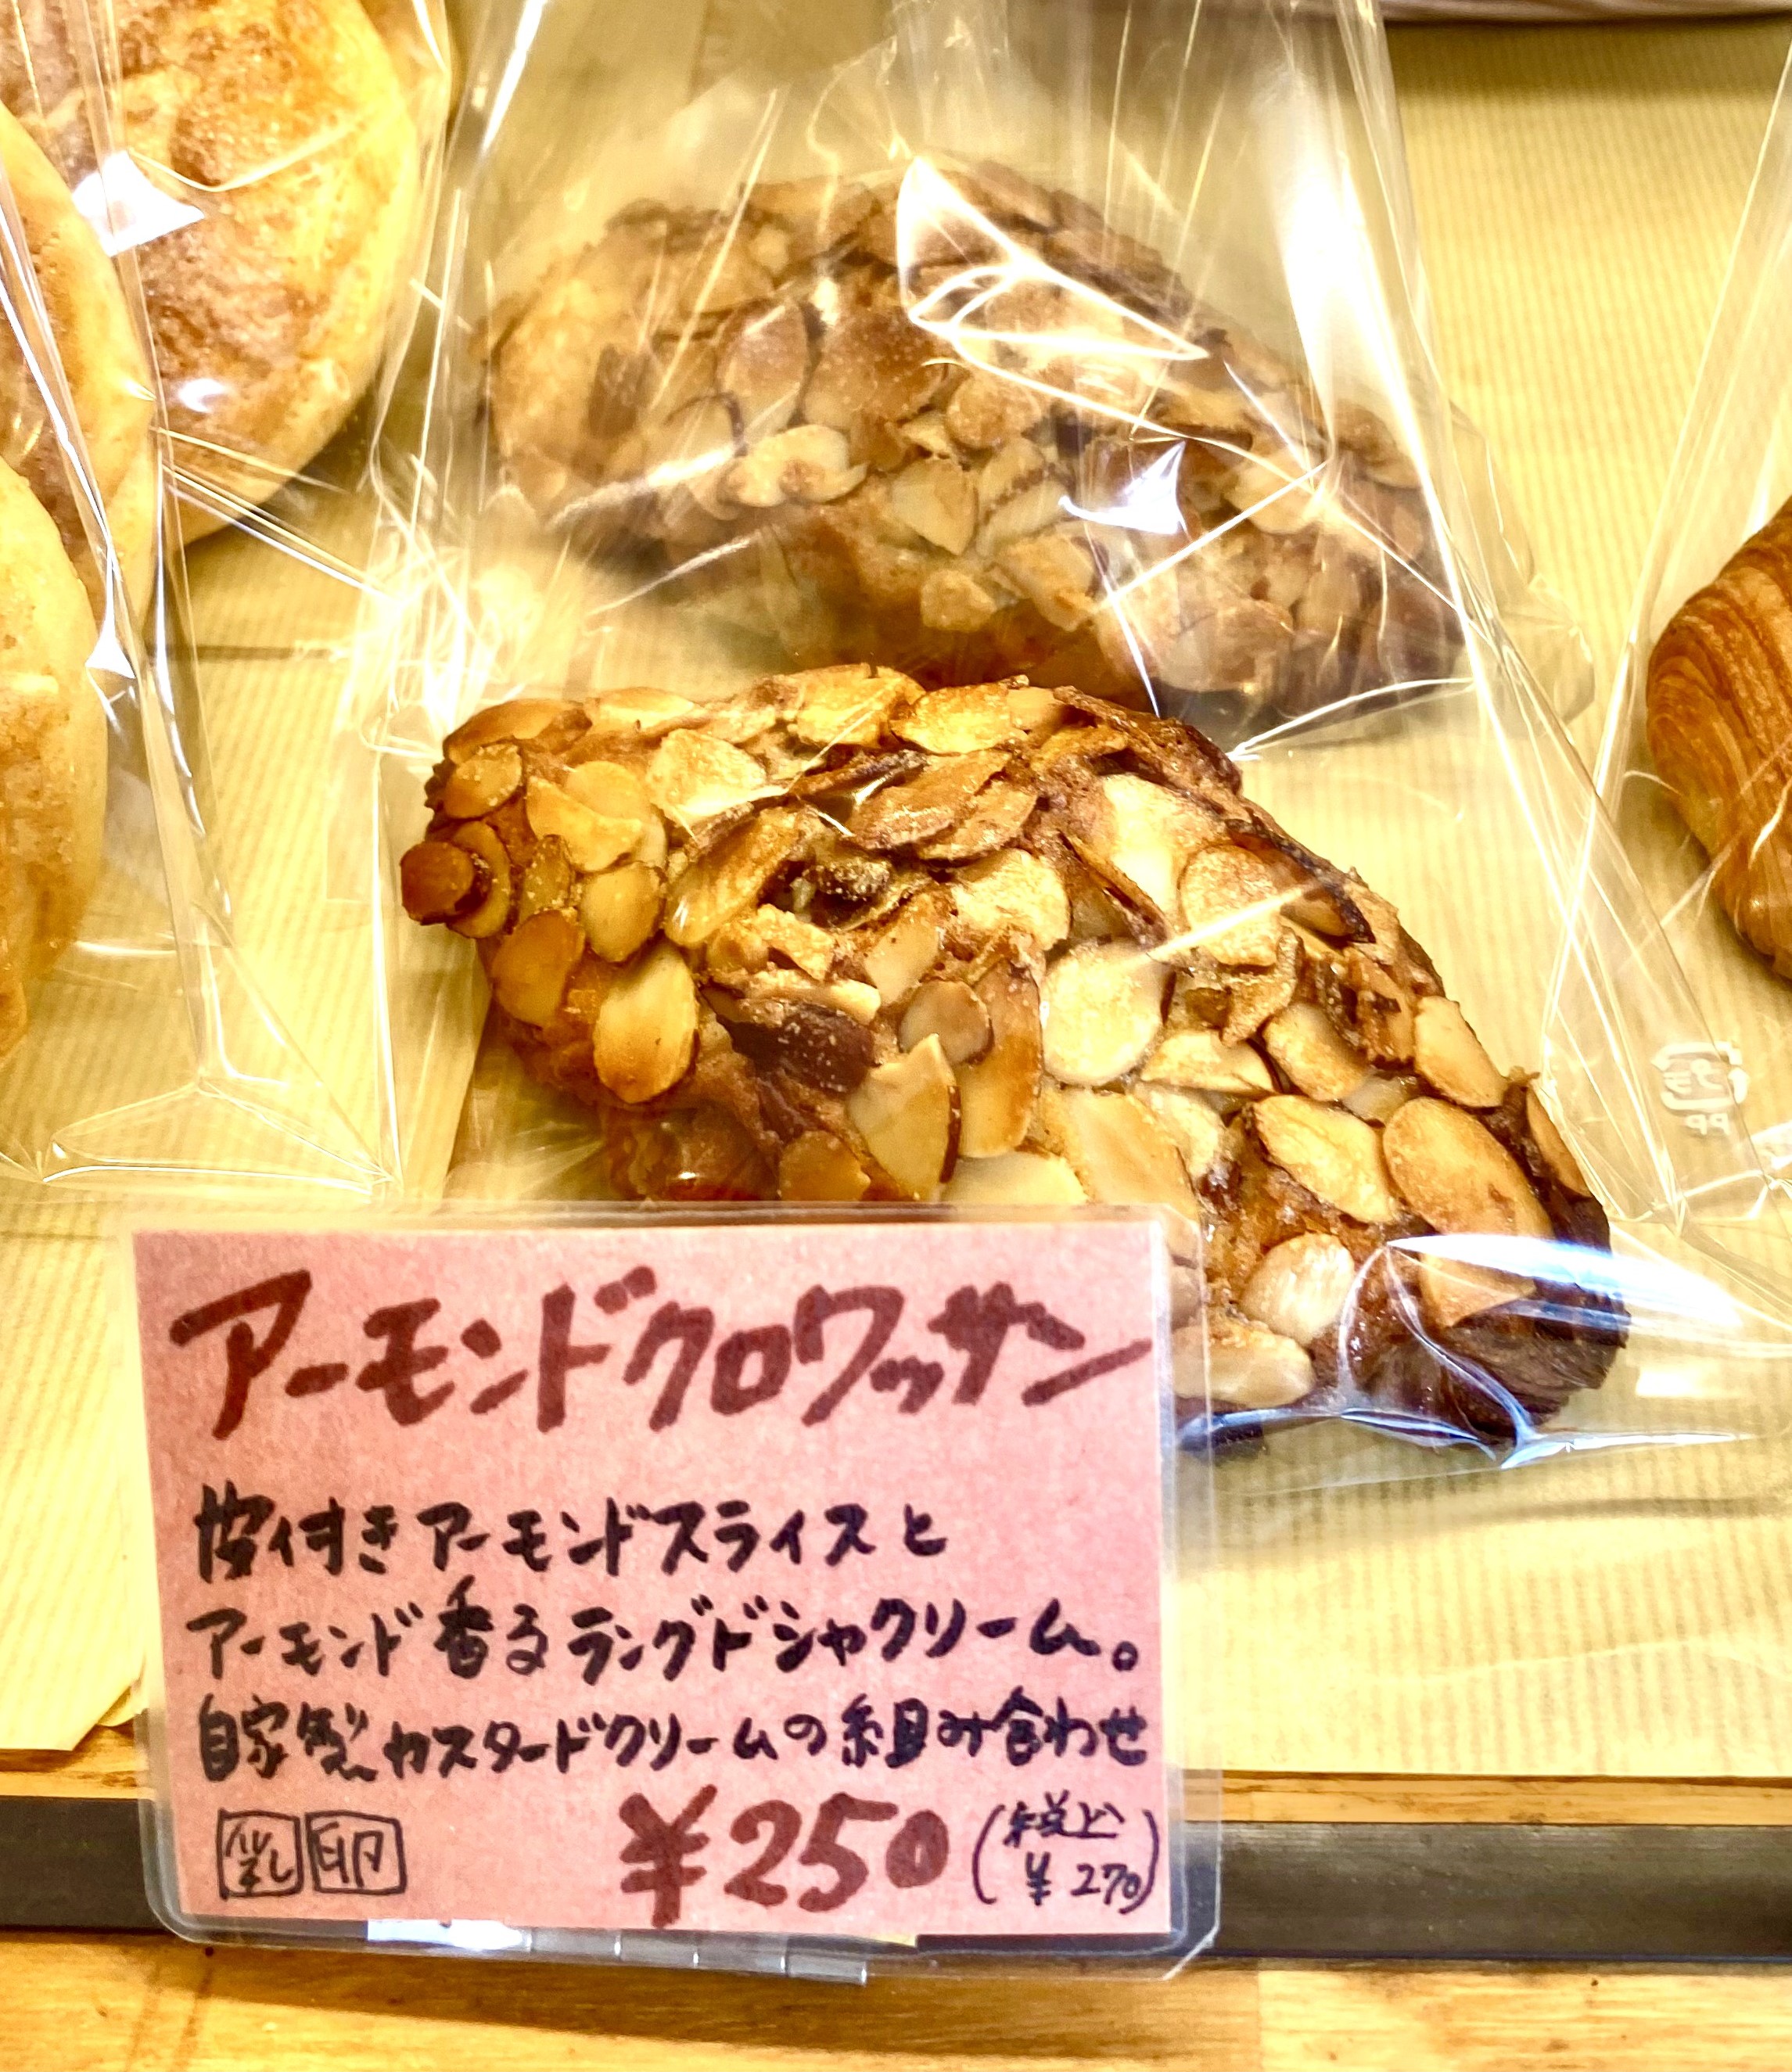 アーモンドクロワッサン
皮付きアーモンドスライスと
アーモンド香るラングドシャクリーム。
自家製カスタードクリームの組み合わせ
乳 卵 ¥250 (税込 ¥270)
プラ
PP